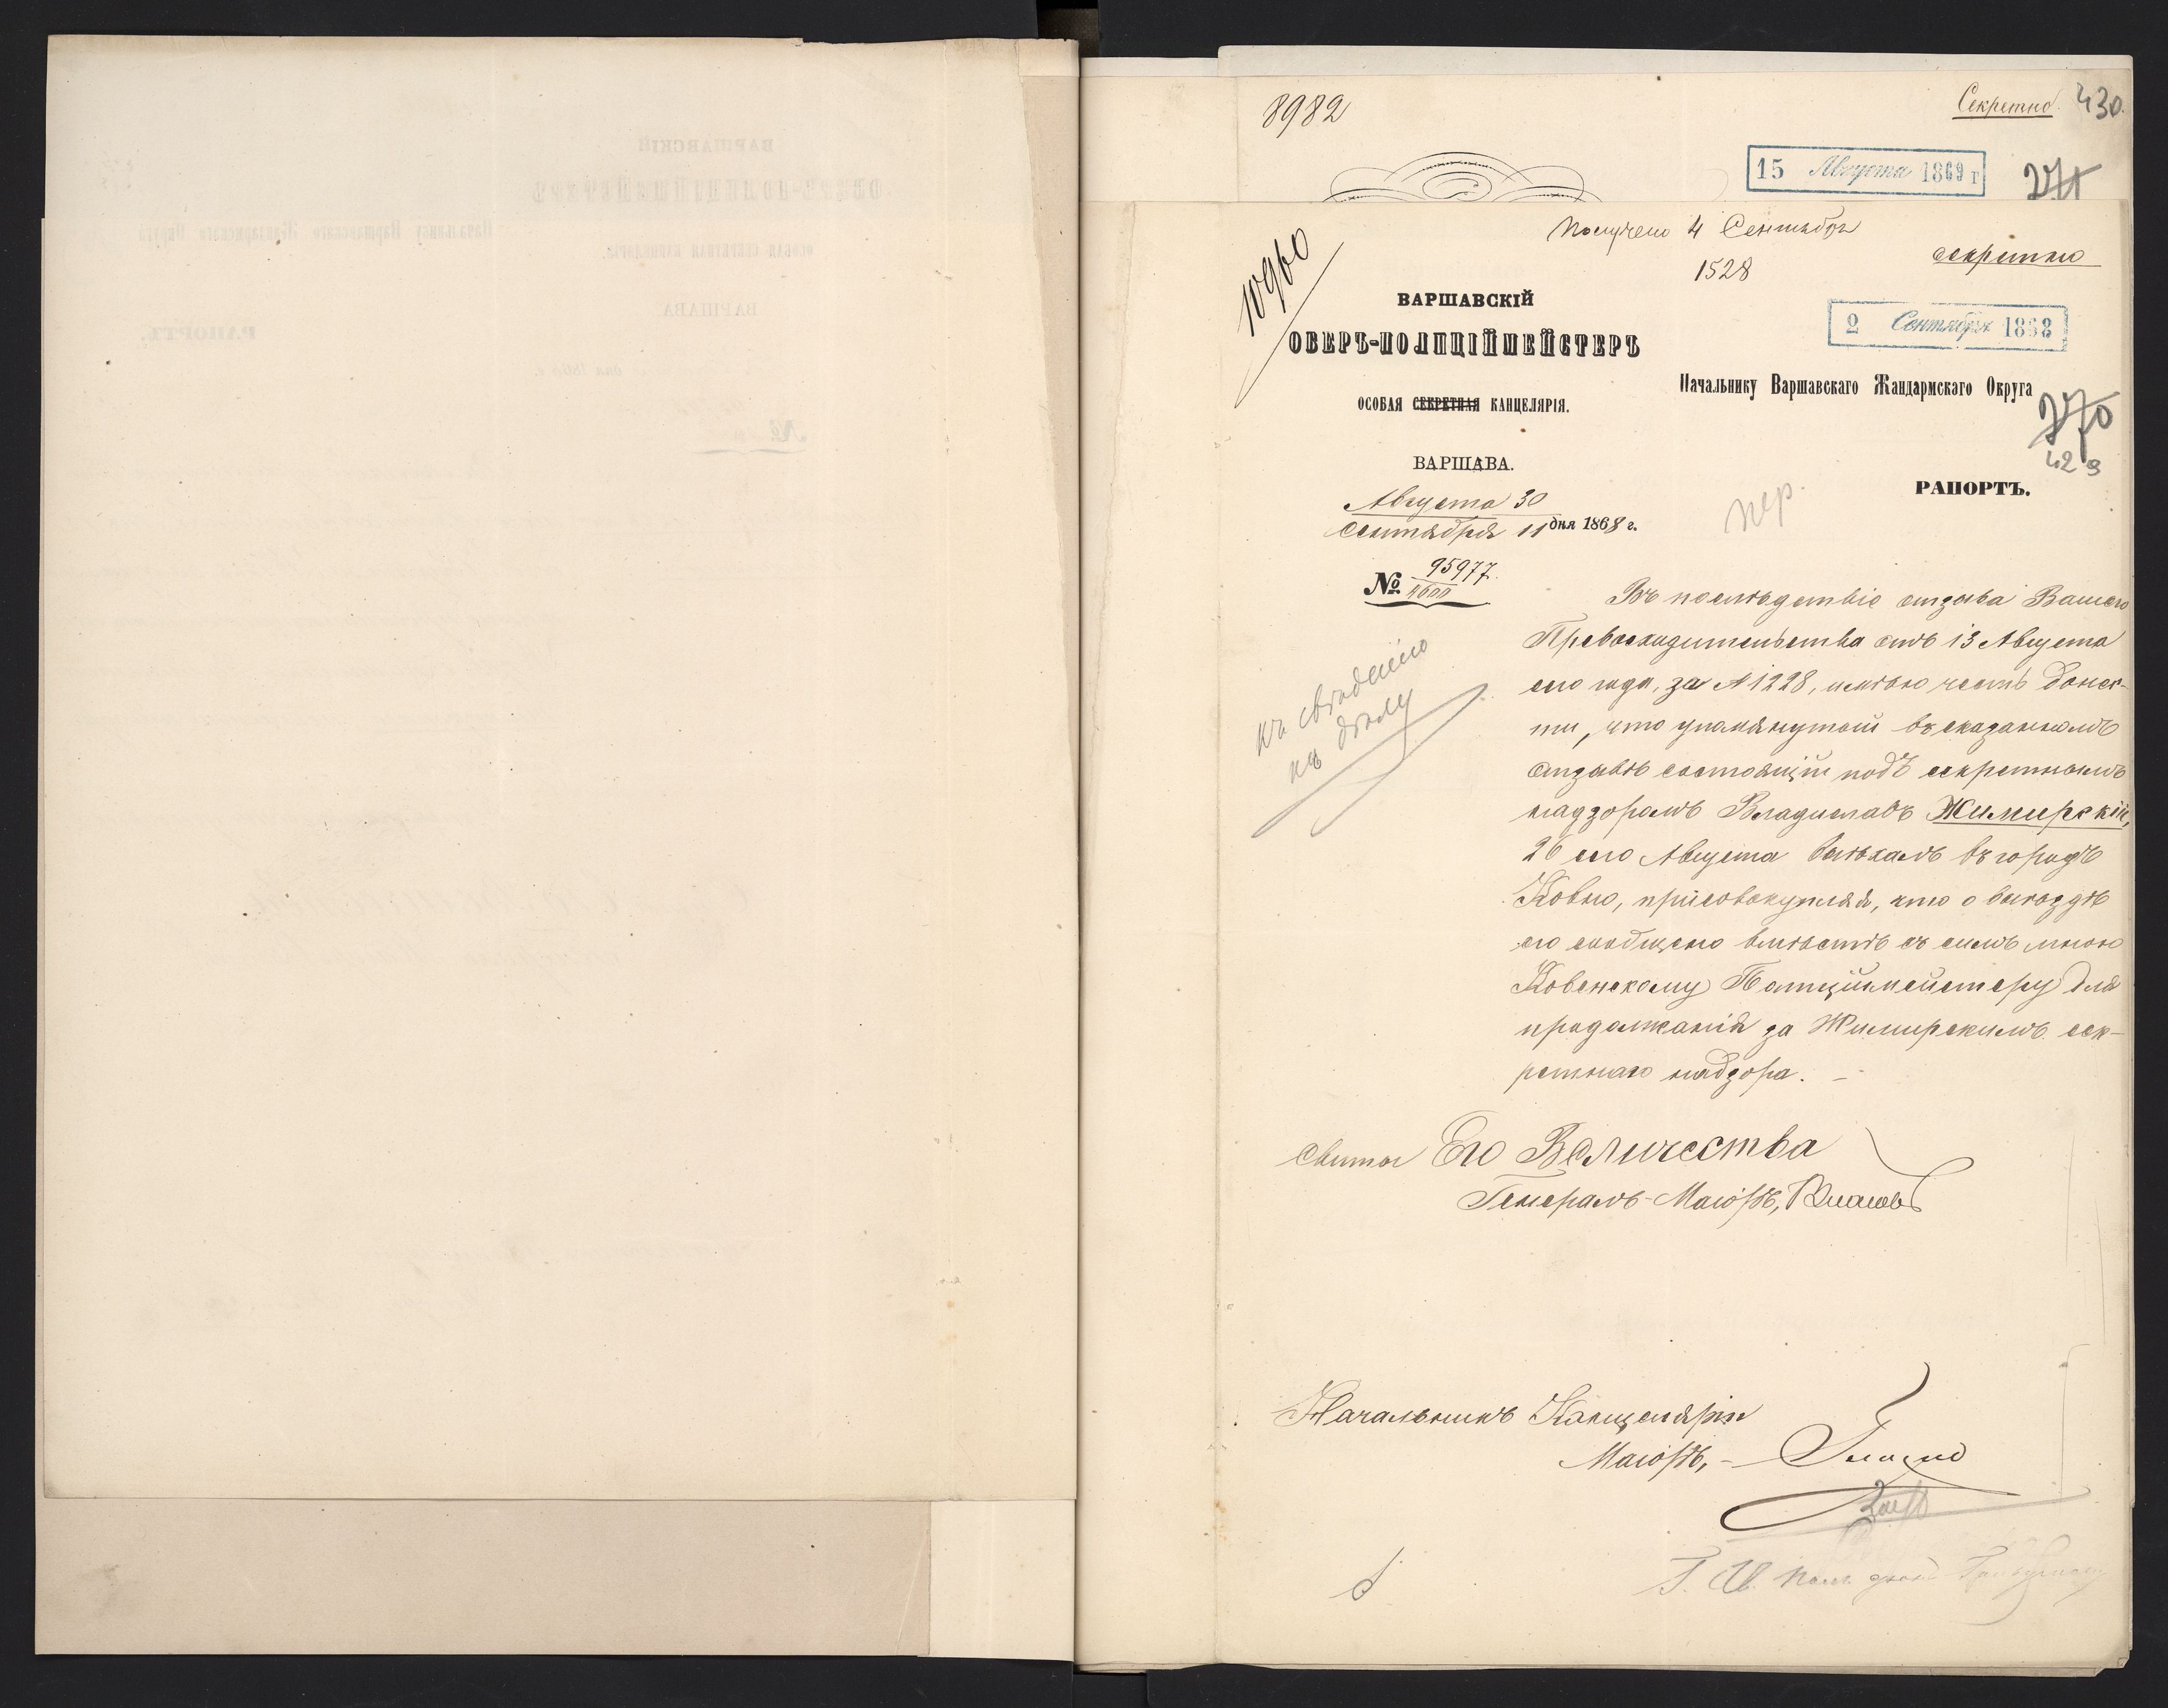 8982
Секретно. 430.
15 Августа 1869 г
271
Получено 4 Сентября
1528
секретно
10960
ВАРШАВСКІЙ
ОБЕРЪ-ПОЛИЦІЙМЕЙСТЕРЪ
ОСОБАЯ СЕКРЕТНАЯ КАНЦЕЛЯРІЯ.
ВАРШАВА.
Августа 30
Сентября 11 дня 1868 г.
№ 95977
2 Сентября 1868
Начальнику Варшавскаго Жандармскаго Округа
270
429
РАПОРТЪ.
Въ послѣдствіе отзыва Вашего
Превосходительства отъ 13 Августа
сего года, за № 1228, имѣю честь донес-
ти, что упомянутый въ сказанномъ
отзывѣ состоящій подъ секретнымъ
надзоромъ Владиславъ Жимирскій,
26 сего Августа выѣхалъ въ городъ
Ковно, присовокупляя, что о выѣздѣ
его сообщено вмѣстѣ съ симъ мною
Ковенскому Полиціймейстеру для
продолжанія за Жимирскимъ сек-
ретнаго надзора. —
къ свѣденію
къ дѣлу
Свиты Его Величества
Генералъ-Маіоръ, Власовъ
Начальникъ Канцеляріи
Маіоръ, —